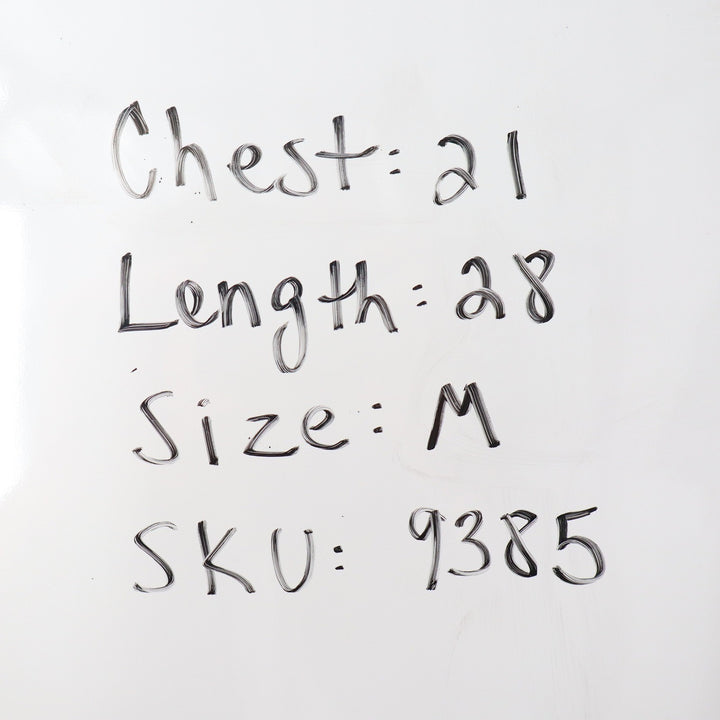 Chest: 21
Length: 28
Size: M
SKU: 9385